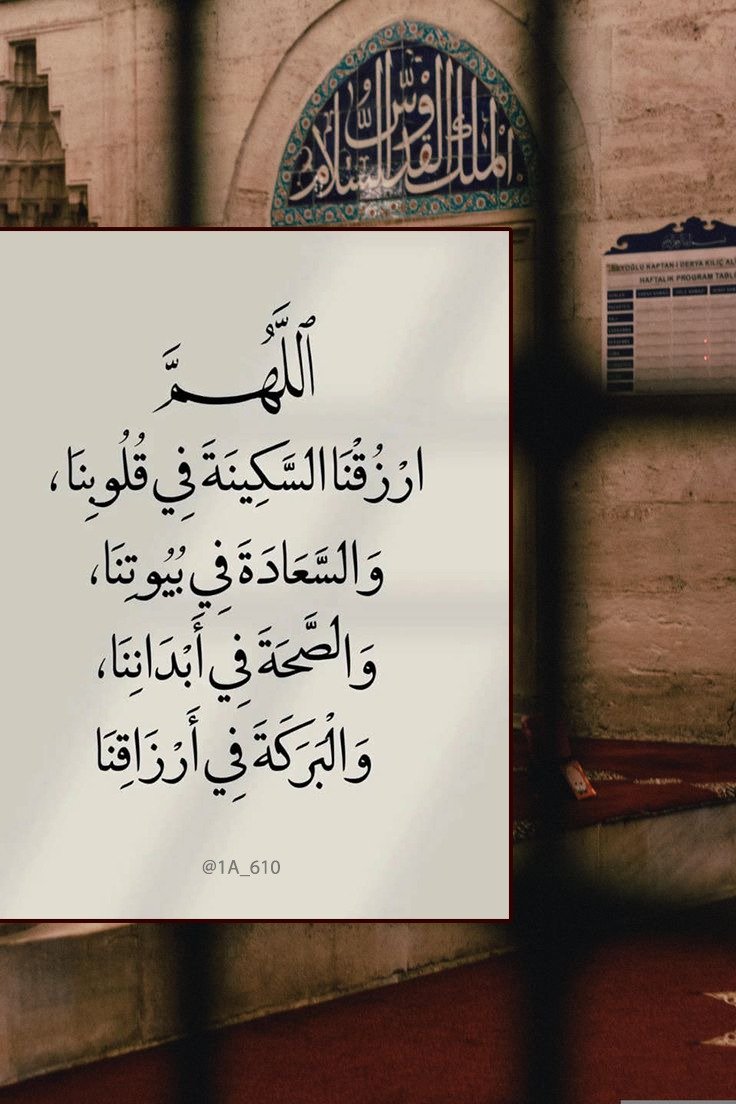 الملك القدوس السلام
BEYOĞLU KAPTAN-I DERYA KILIÇ ALİ
HAFTALIK PROGRAM TABLO
ٱللَّهُمَّ
ارْزُقْنَا السَّكِينَةَ فِي قُلُوبِنَا،
وَالسَّعَادَةَ فِي بُيُوتِنَا،
وَالصَّحَةَ فِي أَبْدَانِنَا،
وَالْبَرَكَةَ فِي أَرْزَاقِنَا
@1A_610